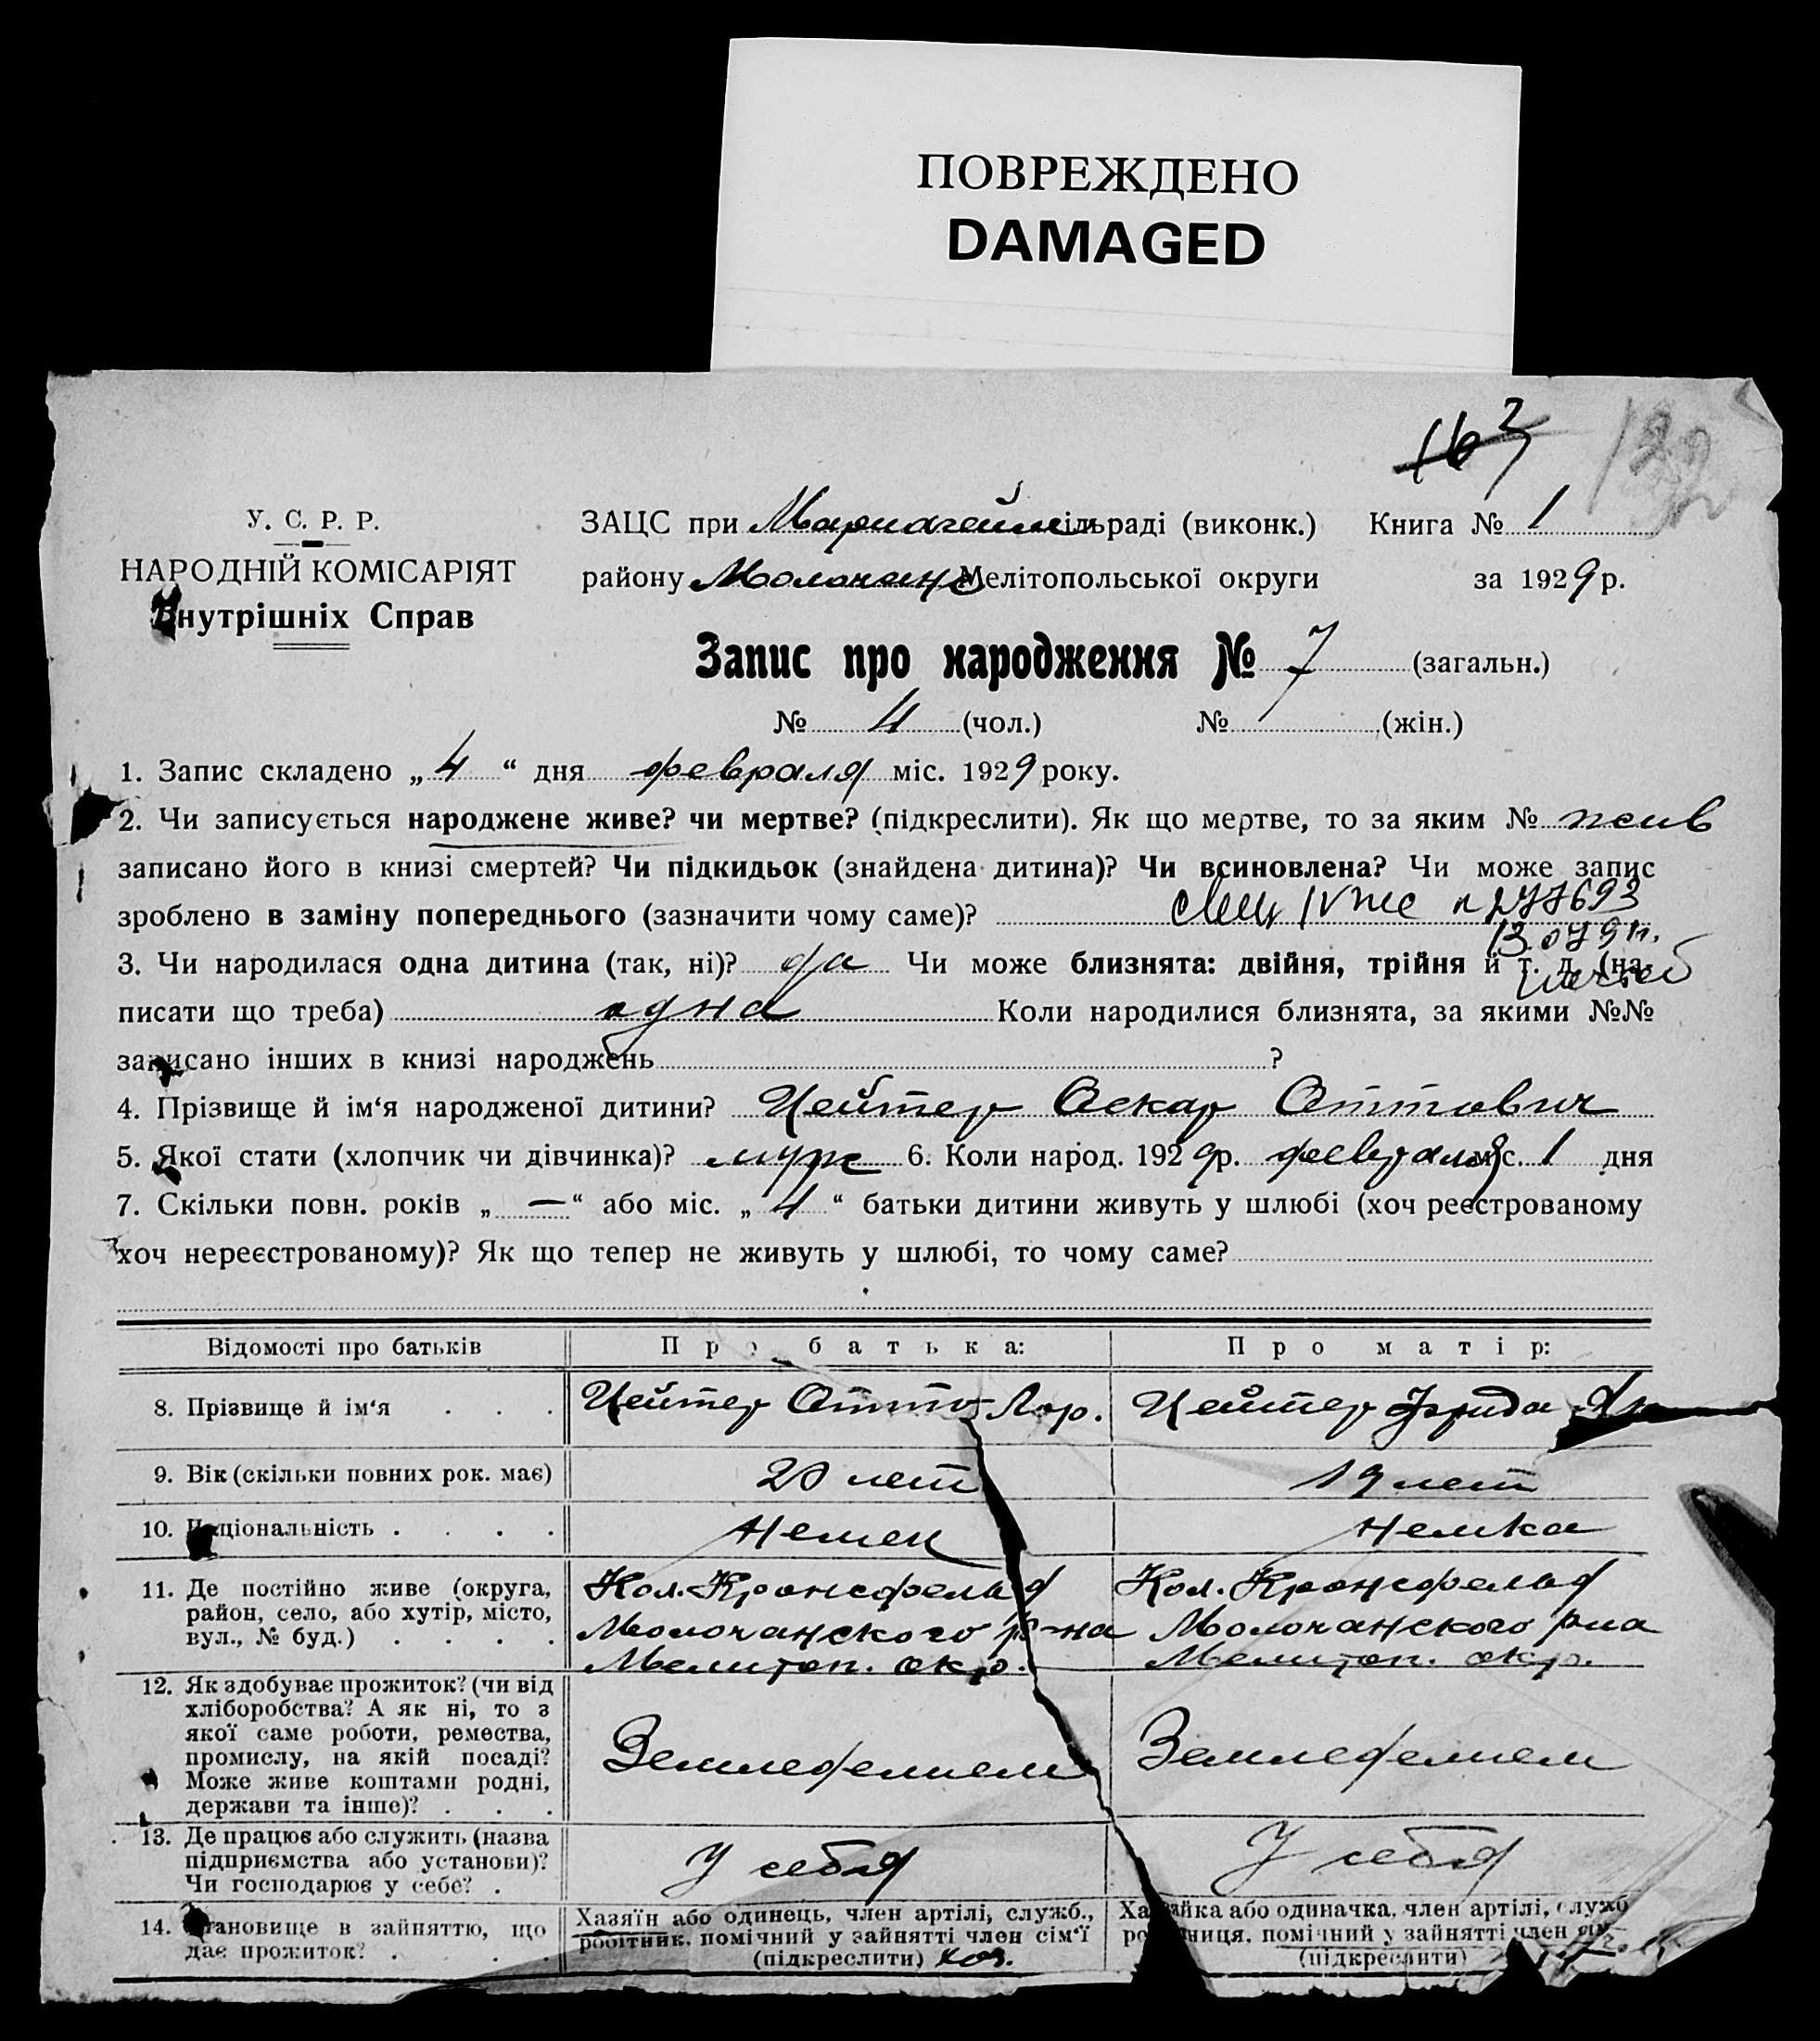 ПОВРЕЖДЕНО
DAMAGED
163
У. С. Р. Р.
НАРОДНІЙ КОМІСАРІЯТ
Внутрішніх Справ
ЗАЦС при Мариагейм сільраді (виконк.) Книга № 1
району Молочанс Мелітопольської округи за 1929 р.
Запис про народження № 7 (загальн.)
№ 4 (чол.) № (жін.)
1. Запис складено „ 4 “ дня февраля міс. 1929 року.
2. Чи записується народжене живе? чи мертве? (підкреслити). Як що мертве, то за яким № жив
записано його в книзі смертей? Чи підкидьок (знайдена дитина)? Чи всиновлена? Чи може запис
зроблено в заміну попереднього (зазначити чому саме)?
3. Чи народилася одна дитина (так, ні)? да Чи може близнята: двійня, трійня й т. д. (на-
писати що треба) одна Коли народилися близнята, за якими №№
записано інших в книзі народжень ?
4. Прізвище й ім‘я народженої дитини? Цейтер Аскар Оттович
5. Якої стати (хлопчик чи дівчинка)? муж 6. Коли народ. 1929 р. февраля міс. 1 дня
7. Скільки повн. років „ — “ або міс. „ 4 “ батьки дитини живуть у шлюбі (хоч реєстрованому
хоч нереєстрованому)? Як що тепер не живуть у шлюбі, то чому саме?
Відомості про батьків Про батька: Про матір:
8. Прізвище й ім‘я . . . Цейтер Отто Лор. Цейтер Фрида
9. Вік (скільки повних рок. має) 20 лет 19 лет
10. Національність . . . . Немец Немка
11. Де постійно живе (округа, район, село, або хутір, місто, вул., № буд.) . . . .
Кол. Кронсфельд
Молочанского р-на
Мелитоп. окр.
Кол. Кронсфельд
Молочанского рна
Мелитоп. окр.
12. Як здобуває прожиток? (чи від
хліборобства? А як ні, то з
якої саме роботи, ремества,
промислу, на якій посаді?
Може живе коштами родні,
держави та інше)? . . .
Земледелием Земледелием
13. Де працює або служить (назва
підприємства або установи)?
Чи господарює у себе? .
У себя У себя
14. Становище в зайняттю, що
дає прожиток? . . .
Хазяїн або одинець, член артілі, служб.,
робітник, помічний у зайнятті член сім‘ї
(підкреслити) хоз.
Хазяйка або одиначка, член артілі, служб
робітниця, помічний у зайнятті член сім
(підкреслити)